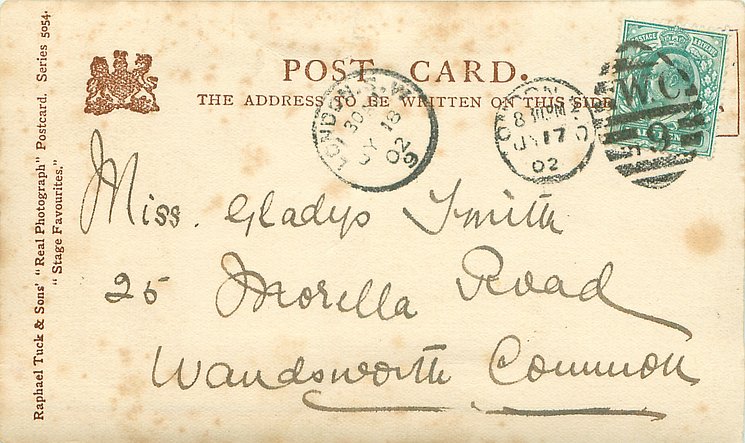 POST CARD.
THE ADDRESS TO BE WRITTEN ON THIS SIDE
Raphael Tuck & Sons' "Real Photograph" Postcard. Series 5054.
"Stage Favourites."
LONDON. S.W.
JY 18
02
8
JY 17
02
W.C
9
POSTAGE
Miss. Gladys Smith
25 Morella Road
Wandsworth Common